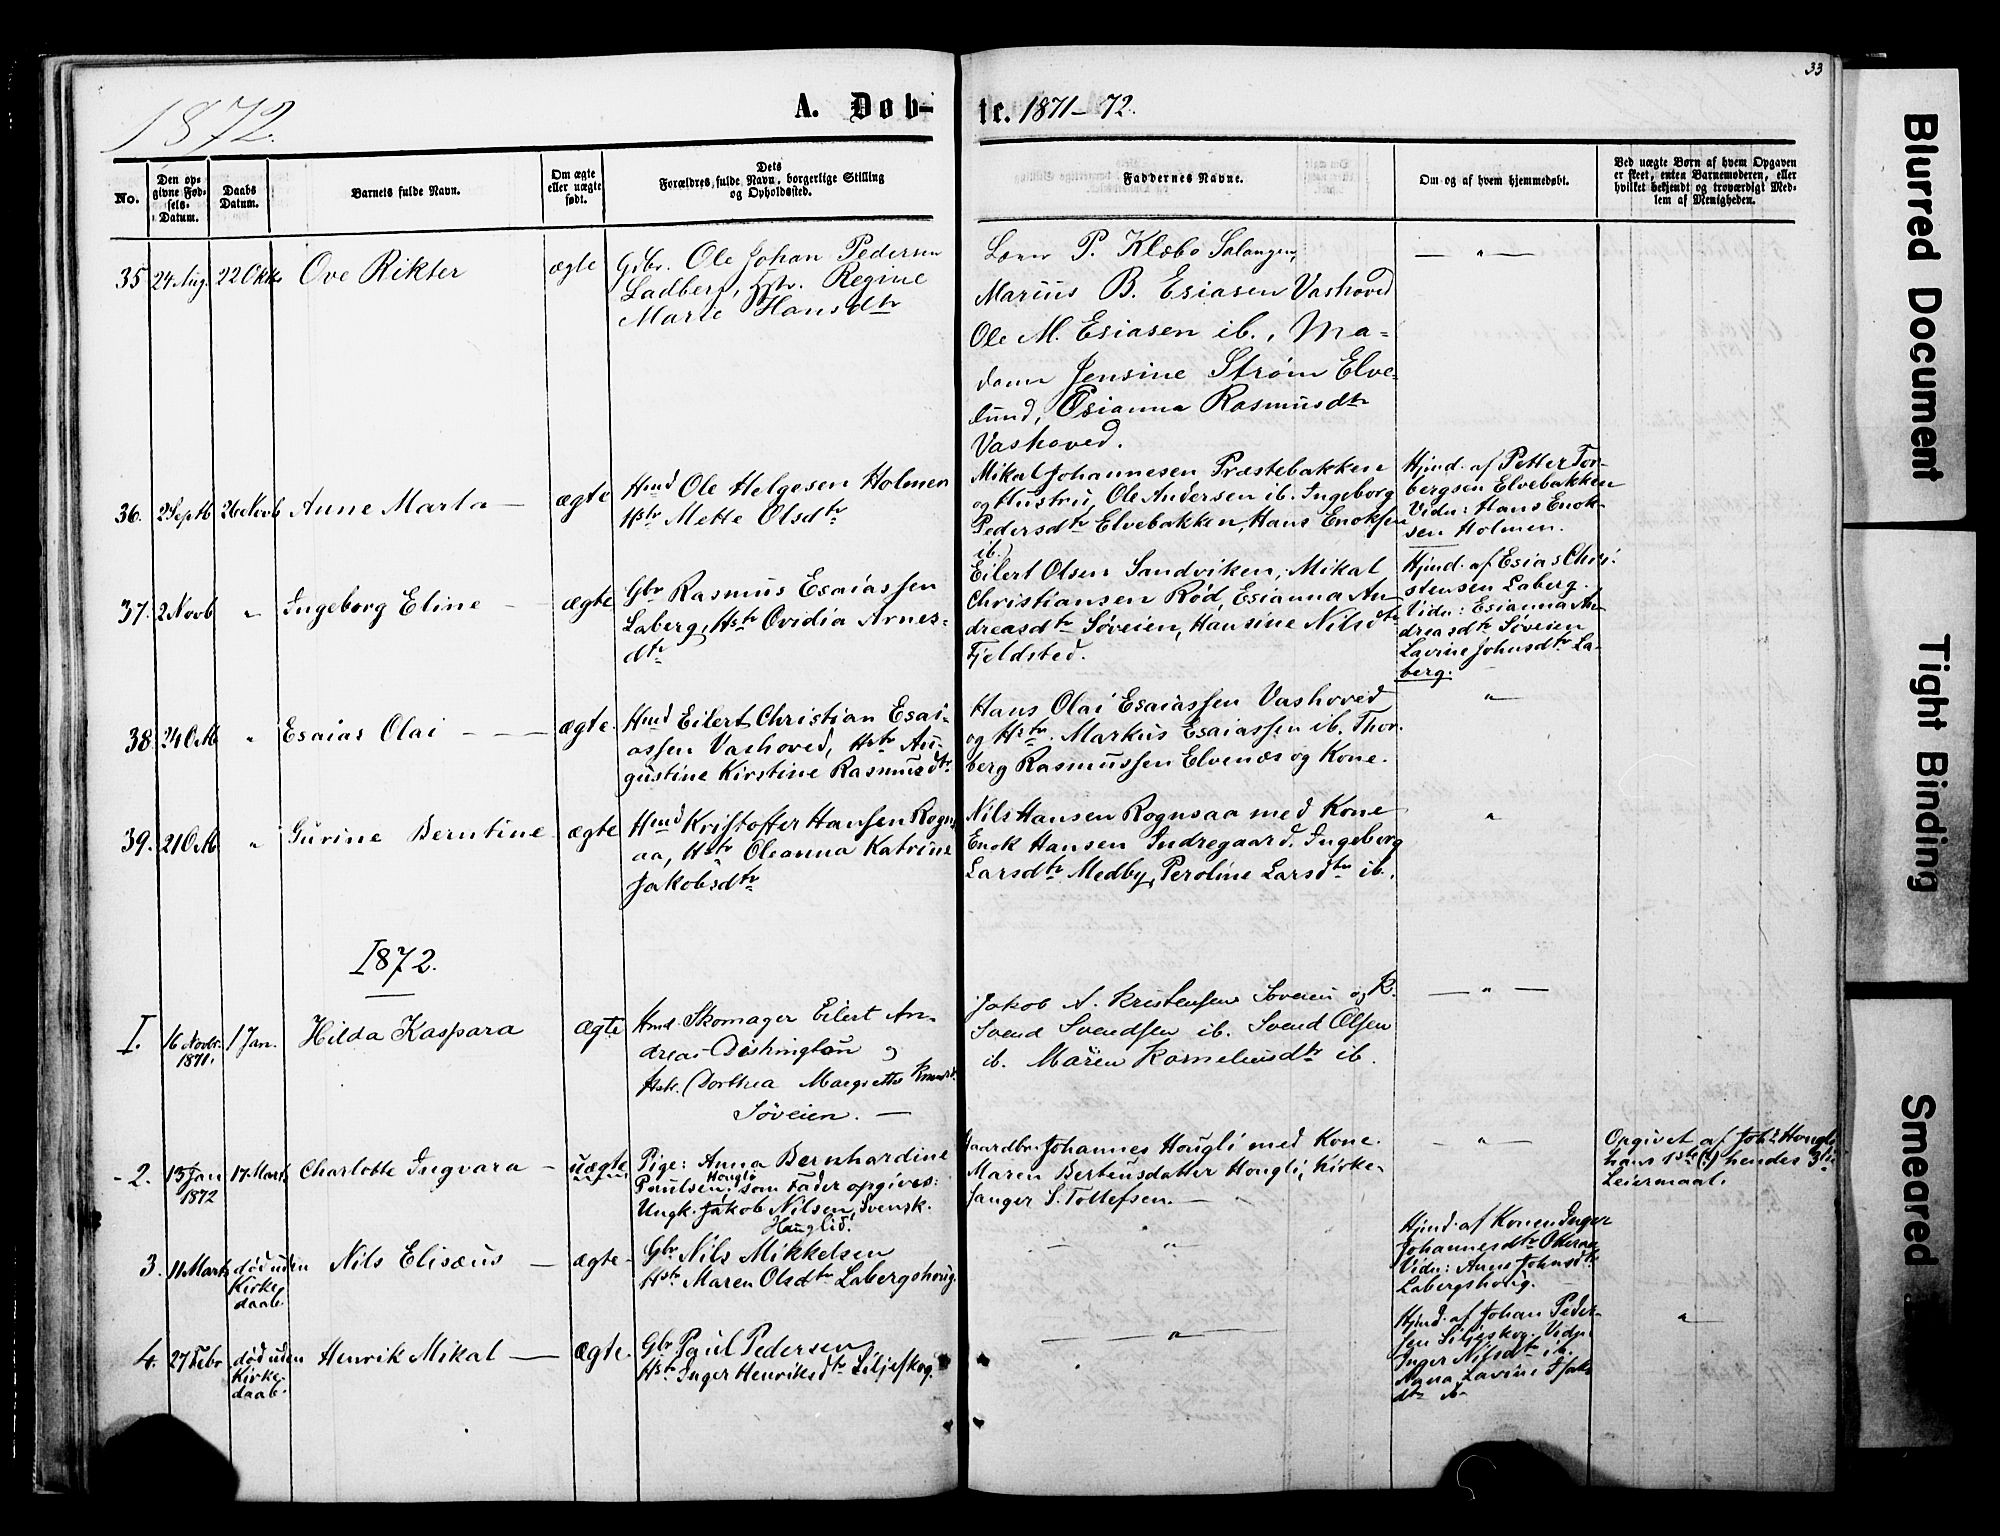 33
1872.
A. Døb-
te. 1871-72.
No.
Den op-
givne Fød-
sels-
Datum.
Daabs
Datum.
Barnets fulde Navn.
Om ægte
eller uægte
født.
Dets
Forældres fulde Navn, borgerlige Stilling
og Opholdssted.
Faddernes Navne.
Om og af hvem hjemmedøbt.
Ved uægte Børn af hvem Opgaven
er skeet, enten Barnemoderen, eller
hvilket bekjendt og troværdigt Med-
lem af Menigheden.
35 24 Aug. 22 Oktr Ove Rikter ægte
Gdbr. Ole Johan Pedersen
Ladberg, Hstr. Regine
Marie Hansdtr
P. Klæbo Salangen,
Marius B. Esiasen Vashoved
Ole M. Esiasen ib., Ma-
dame Jensine Strøm Elve-
lund, Esianna Rasmusdtr
Vashoved.
— " —
36. 2 Septb 26 Novb Anne Marta — ægte
Hmd Ole Helgesen Holmen
Hstr Mette Olsdtr
Mikal Johannesen Præstebakken
og Hustru, Ole Andersen ib. Ingeborg
Pedersdtr Elvebakken, Hans Enoksen
ib.
Hjmd. af Petter Tor-
bergsen Elvebakken
Vidn: Hans Enok-
sen Holmen.
37. 2 Novb " Ingeborg Eline — ægte
Gbr Rasmus Esaiassen
Laberg, Hstr Ovidia Arnes-
dtr
Eilert Olsen Sandviken, Mikal
Christiansen Rød, Esianna An-
dreasdtr Søveien, Hansine Nilsdtr
Fjeldsted.
Hjmd. af Esias Chri-
stensen Laberg.
Vidn: Esianna An-
dreasdtr Søveien
Lavine Johnsdtr La-
berg.
38. 24 Oktb " Esaias Olai — — ægte.
Hmd Eilert Christian Esai-
assen Vashoved, Hstr Au-
gustine Kirstine Rasmusdtr
Hans Olai Esaiassen Vashoved
og Hstr. Markus Esaiassen ib. Thor-
berg Rasmussen Elvenæs og Kone.
" —
39. 21 Oktb " Gurine Berntine ægte
Hmd Kristoffer Hansen Rogns-
aa, Hstr Oleanna Katrine
Jakobsdtr
Nils Hansen Rognsaa med Kone
Enok Hansen Indregaard. Ingeborg
Larsdtr Medby, Peroline Larsdtr ib.
"
1872.
I. 16 Novbr. 1871. 1 Jan. Hilda Kaspara ægte
Hmd. Skomager Eilert An-
dreas Dishington og
Hstr. Dorthea Margrethe
Søveien. —
Jakob A. Kristensen Søveien og K.
Svend Svendsen ib. Svend Olsen
ib. Maren Korneliusdtr ib.
— " —
-2. 13 Jan 1872 17 Marts Charlotte Ingvara — uægte
Pige: Anna Bernhardine
Paulsen, Hougli som Fader opgives:
Ungk. Jakob Nilsen, Svensk.
Hauglid.
Gaardbr. Johannes Hougli med Kone
Maren Berteusdatter Hougli, Kirke-
sanger S. Tollefsen. —
— " —
Opgivet af Johs Hougli
hans 1ste (?) hendes 3die
Leiermaal.
3. 11 Marts død uden
Kirke-
daab. Nils Elisæus — ægte-
Gbr Nils Mikkelsen
Hstr Maren Olsdtr Labergshoug
— " —
Hjmd. af Konen Inger
Johannesdtr
Vidn: Anne Johnsdtr
Labergshoug.
4. 27 Febr død uden
Kirke-
daab. Henrik Mikal — ægte.
Gbr Paul Pedersen
Hstr Inger Henriksdtr Liljeskog.
— " —
Hjmd. af Johan Peder-
sen Liljeskog. Vidn:
Inger Nilsdtr ib.
Anna Lavine Isak-
dtr ib.
"
Blurred Document
Tight Binding
Smeared